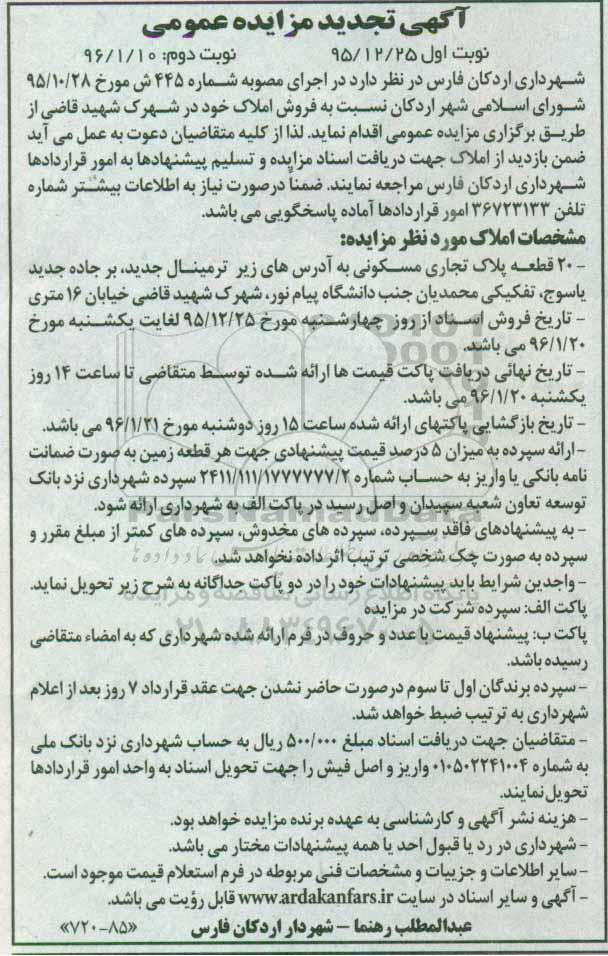 آگهی تجدید مزایده عمومی
نوبت اول ۹۵/۱۲/۲۵ نوبت دوم: ۹۶/۱/۱۰
شهرداری اردکان فارس در نظر دارد در اجرای مصوبه شماره ۴۴۵ ش مورخ ۹۵/۱۰/۲۸
شورای اسلامی شهر اردکان نسبت به فروش املاک خود در شهرک شهید قاضی از
طریق برگزاری مزایده عمومی اقدام نماید. لذا از کلیه متقاضیان دعوت به عمل می آید
ضمن بازدید از املاک جهت دریافت اسناد مزایده و تسلیم پیشنهادها به امور قراردادها
شهرداری اردکان فارس مراجعه نمایند. ضمناً درصورت نیاز به اطلاعات بیشتر شماره
تلفن ۳۶۷۲۳۱۳۳ امور قراردادها آماده پاسخگویی می باشد.
مشخصات املاک مورد نظر مزایده:
- ۲۰ قطعه پلاک تجاری مسکونی به آدرس های زیر ترمینال جدید، بر جاده جدید
یاسوج، تفکیکی محمدیان جنب دانشگاه پیام نور، شهرک شهید قاضی خیابان ۱۶ متری
- تاریخ فروش اسناد از روز چهارشنبه مورخ ۹۵/۱۲/۲۵ لغایت یکشنبه مورخ
۹۶/۱/۲۰ می باشد.
- تاریخ نهائی دریافت پاکت قیمت ها ارائه شده توسط متقاضی تا ساعت ۱۴ روز
یکشنبه ۹۶/۱/۲۰ می باشد.
- تاریخ بازگشایی پاکتهای ارائه شده ساعت ۱۵ روز دوشنبه مورخ ۹۶/۱/۲۱ می باشد.
- ارائه سپرده به میزان ۵ درصد قیمت پیشنهادی جهت هر قطعه زمین به صورت ضمانت
نامه بانکی یا واریز به حساب شماره ۲۴۱۱/۱۱۱/۱۷۷۷۷۷۷/۲ سپرده شهرداری نزد بانک
توسعه تعاون شعبه سپیدان و اصل رسید در پاکت الف به شهرداری ارائه شود.
- به پیشنهادهای فاقد سپرده، سپرده های مخدوش، سپرده های کمتر از مبلغ مقرر و
سپرده به صورت چک شخصی ترتیب اثر داده نخواهد شد.
- واجدین شرایط باید پیشنهادات خود را در دو پاکت جداگانه به شرح زیر تحویل نماید.
پاکت الف: سپرده شرکت در مزایده
پاکت ب: پیشنهاد قیمت با عدد و حروف در فرم ارائه شده شهرداری که به امضاء متقاضی
رسیده باشد.
- سپرده برندگان اول تا سوم درصورت حاضر نشدن جهت عقد قرارداد ۷ روز بعد از اعلام
شهرداری به ترتیب ضبط خواهد شد.
- متقاضیان جهت دریافت اسناد مبلغ ۵۰۰/۰۰۰ ریال به حساب شهرداری نزد بانک ملی
به شماره ۰۱۰۵۰۲۲۴۱۰۰۴ واریز و اصل فیش را جهت تحویل اسناد به واحد امور قراردادها
تحویل نمایند.
- هزینه نشر آگهی و کارشناسی به عهده برنده مزایده خواهد بود.
- شهرداری در رد یا قبول احد یا همه پیشنهادات مختار می باشد.
- سایر اطلاعات و جزییات و مشخصات فنی مربوطه در فرم استعلام قیمت موجود است.
- آگهی و سایر اسناد در سایت www.ardakanfars.ir قابل رؤیت می باشد.
عبدالمطلب رهنما – شهردار اردکان فارس «۷۲۰-۸۵»
ParsNamadData
پایگاه اطلاع رسانی مناقصه و مزایده